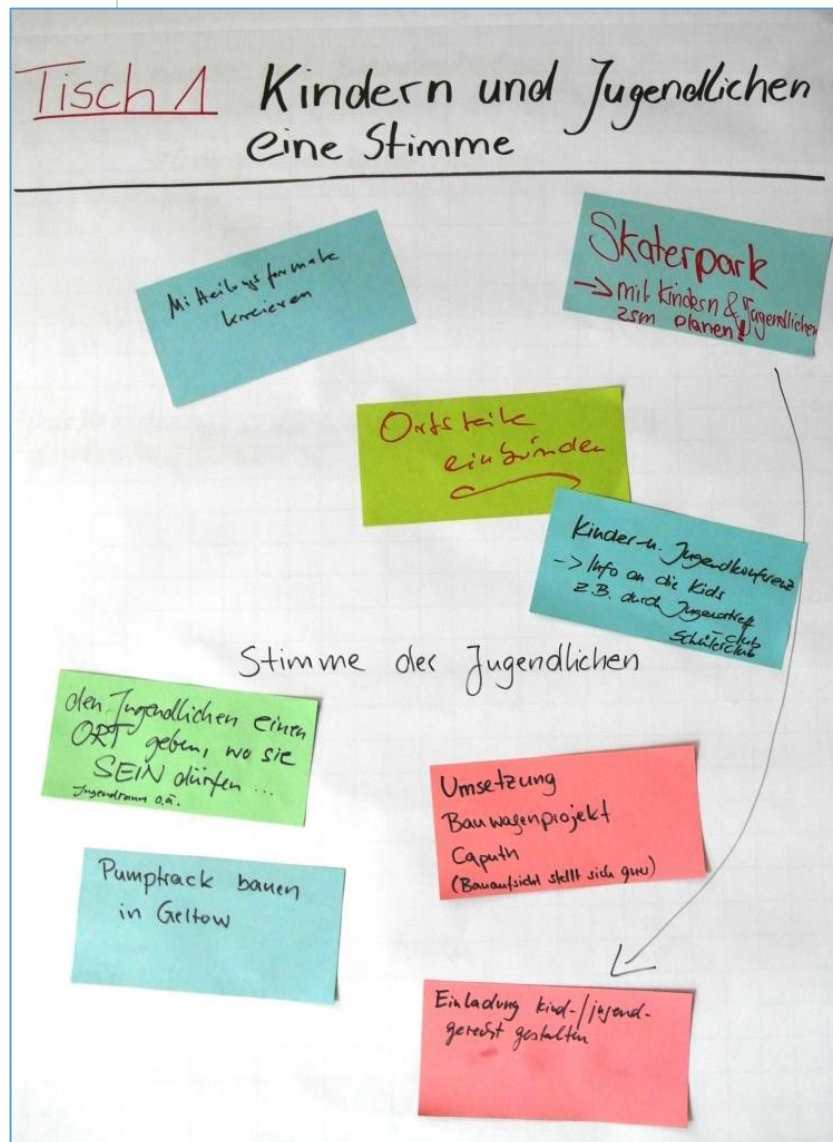 Tisch 1 Kindern und Jugendlichen
eine Stimme
Mitteilungsformate
kreieren
Skaterpark
-> mit Kindern & Jugendlichen
zsm planen!
Ortsteile
einbinden
Kinder- u. Jugendkonferenz
-> Info an die Kids
z.B. durch Jugendtreff
-club
Schülerclub
Stimme der Jugendlichen
den Jugendlichen einen
ORT geben, wo sie
SEIN dürfen ...
Jugendraum o.ä.
Umsetzung
Bauwagenprojekt
Caputh
(Bauaufsicht stellt sich quer)
Pumptrack bauen
in Geltow
Einladung kind-/jugend-
gerecht gestalten